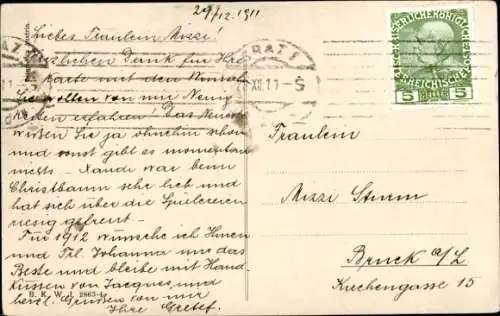 29/12. 1911
Liebes Fräulein Mizzi!
Herzlichen Dank für Ihre
Karte mit dem Wunsch
Sie wollen von mir Neuig-
keiten erfahren! Das Neueste
wissen Sie ja ohnehin schon
und sonst gibt es momentan
nichts. – Xandi war beim
Christbaum sehr lieb und
hat sich über die Spielereien
riesig gefreut. –
Für 1912 wünsche ich Ihnen
und Frl. Johanna nur das
Beste und bleibe mit Hand-
küssen von Jacques und
herzl. Grüssen von mir
Ihre Gretef.
B. K. W. I. 2863-4
GRAZ 1
XII. 11 - 5
KAISERLICHE KÖNIGLICHE
ÖSTERREICHISCHE POST
5 HELLER 5
Fräulein
Mizzi Sturm
Bruck a/L.
Kirchengasse 15